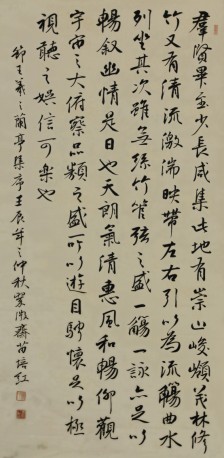 羣賢畢至少長咸集此地有崇山峻領茂林修
竹又有清流激湍映帶左右引以為流觴曲水
列坐其次雖無絲竹管弦之盛一觴一詠亦足以
暢叙幽情是日也天朗氣清惠風和暢仰觀
宇宙之大俯察品類之盛所以遊目騁懷足以極
視聽之娛信可樂也
節王羲之蘭亭集序壬辰年之仲秋齋苗培紅